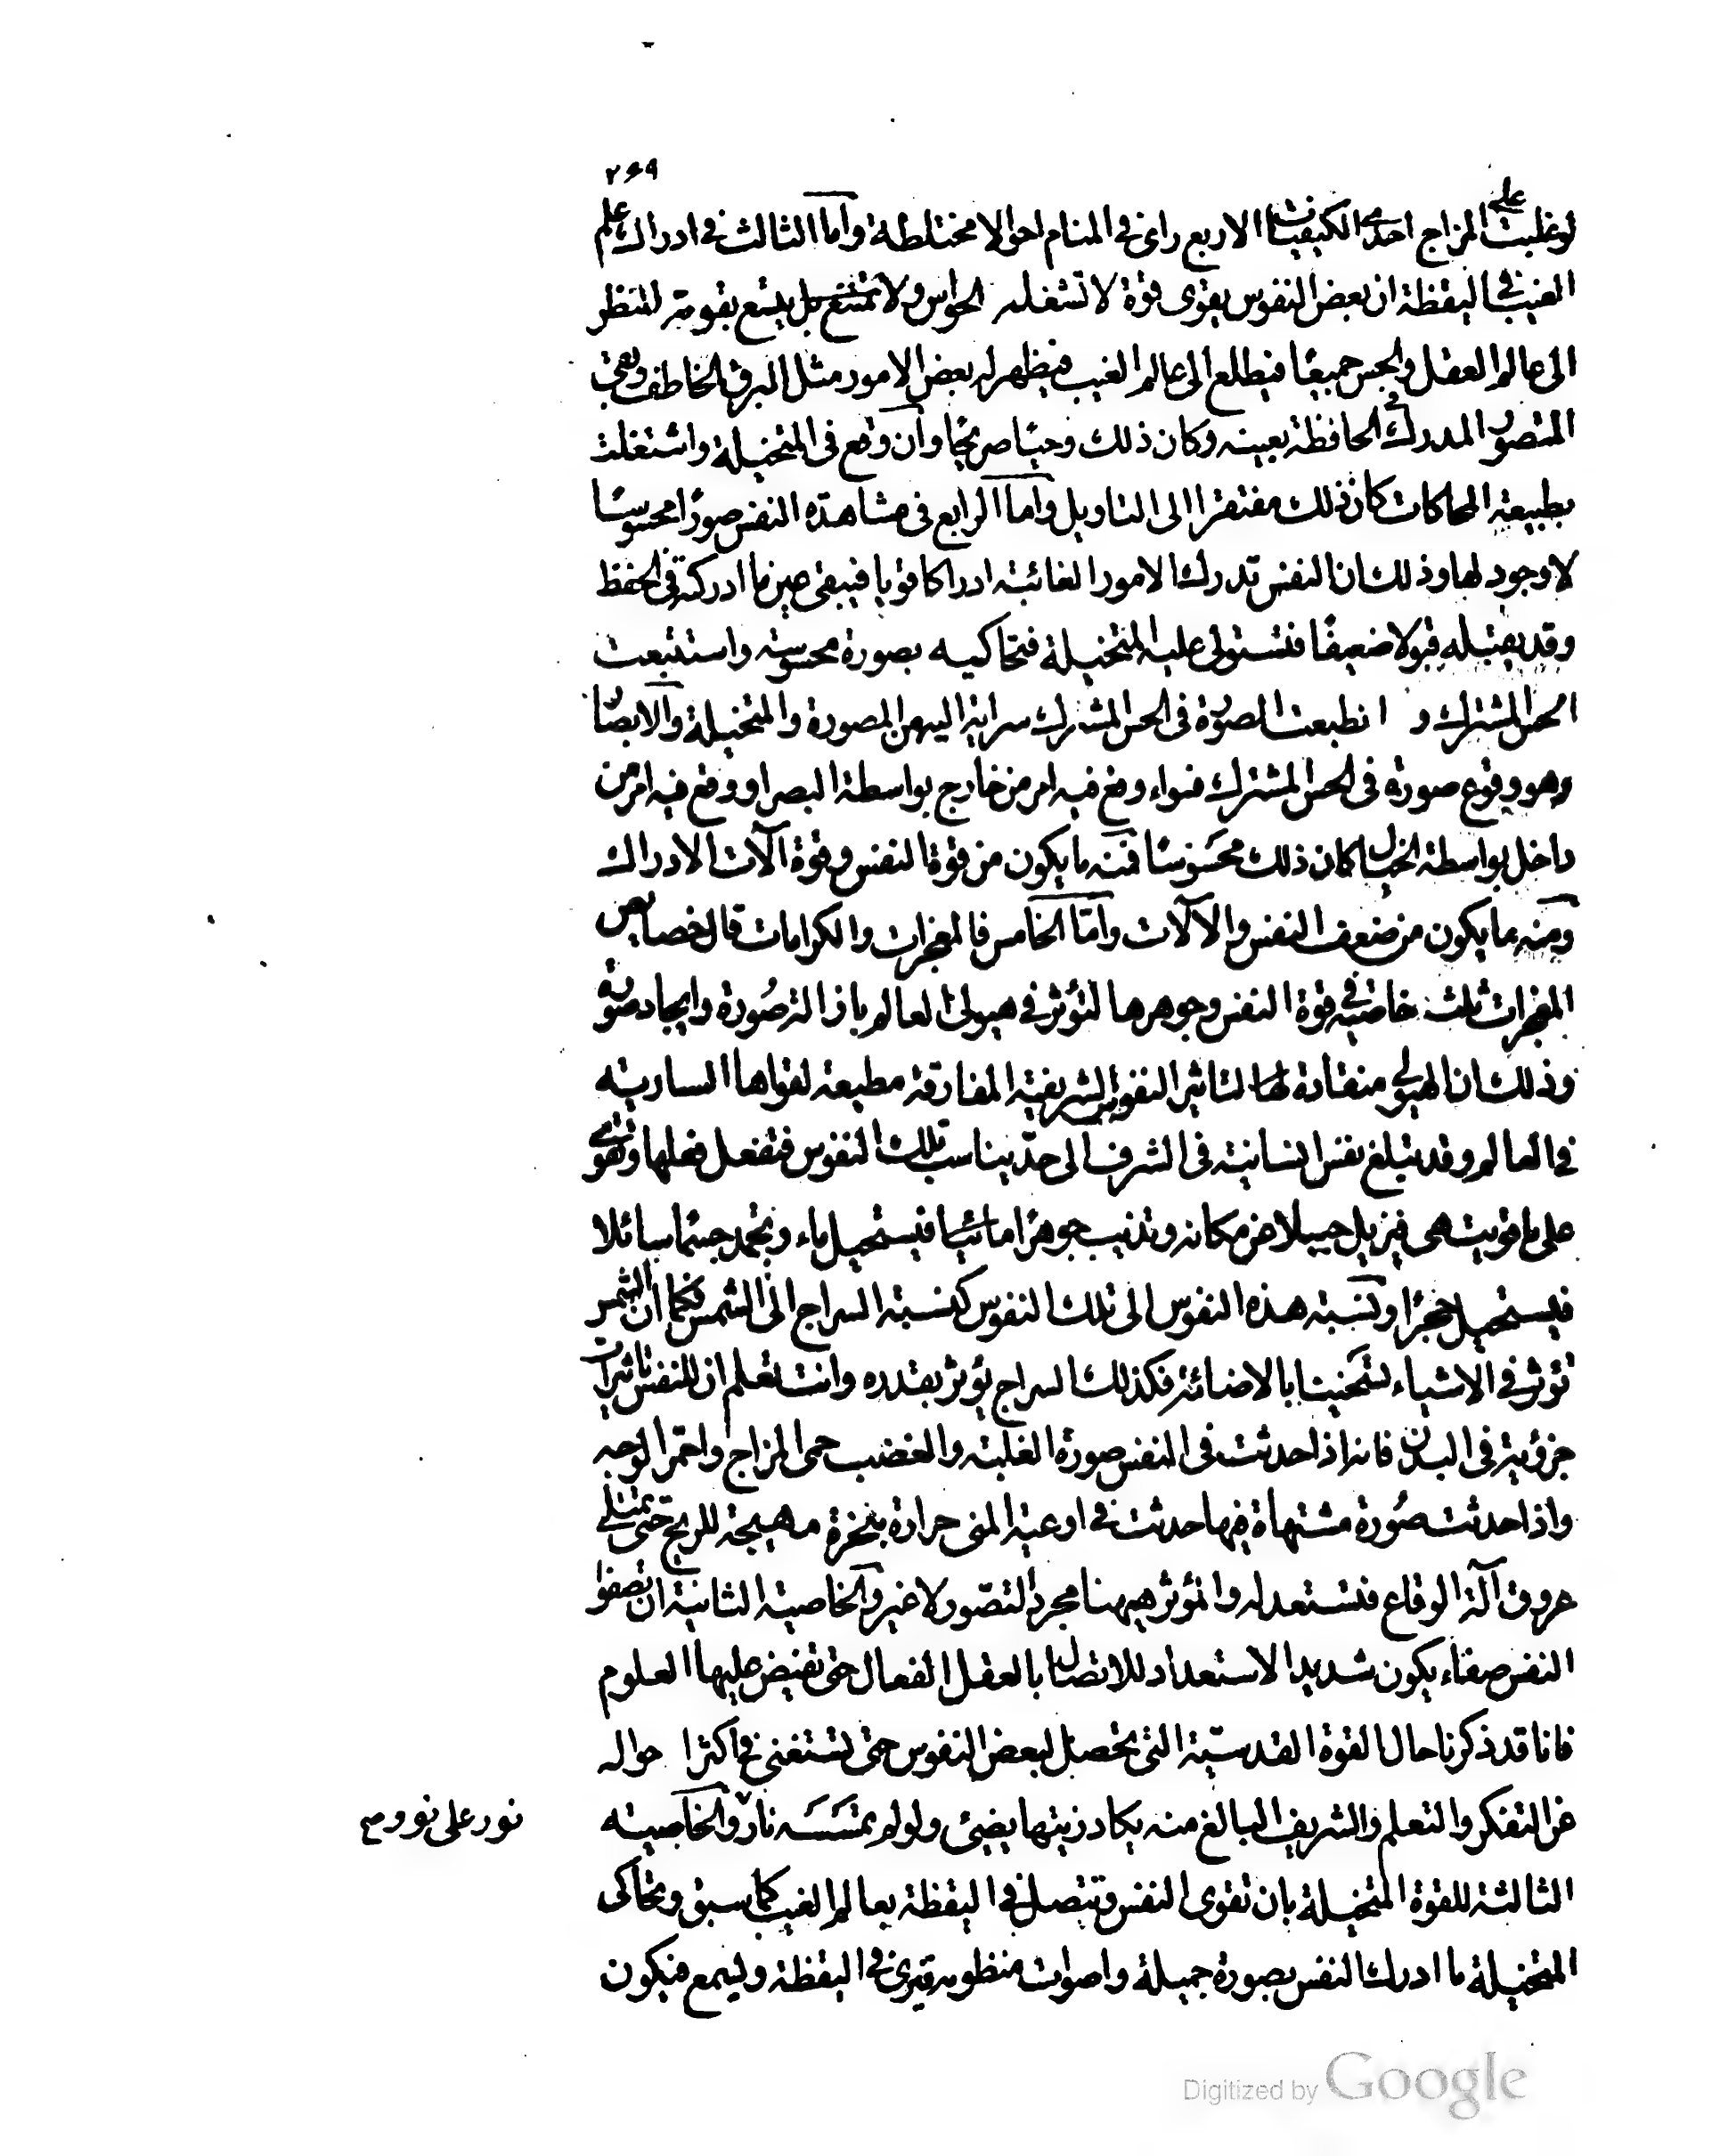 ۲۶۹
لو غلبت على المزاج احدى الكيفيات الاربع راى فى المنام احوالا مختلطة واما الثالث فى ادراك علم
الغيب فى اليقظة ان بعض النفوس يقوى قوة لا تشغله الحواس ولا تمتنع بل يتسع بقوته لتنظر
الى عالم العقل والحس جميعًا فيطلع الى عالم الغيب فيظهر له بعض الامور مثل البرق الخاطف وبقى
المتصور المدرك فى الحافظة بعينه وكان ذلك وحيًا صريحًا وان وقع فى المتخيلة واشتغلت
بطبيعة المحاكات كان ذلك مفتقرا الى التاويل واما الرابع فى مشاهدة النفس صورًا محسوسًا
لا وجود لها وذلك ان النفس تدرك الامور الغائبة ادراكا قويا فيبقى عين ما ادركته فى الحفظ
وقد يقبله قبولا ضعيفًا فتستولى عليه المتخيلة فتحاكيه بصورة محسوسة واستتبعت
الحس المشترك و انطبعت الصورة فى الحس المشترك سراية اليه من المصورة والمتخيلة والابصار
وهو وقوع صورة فى الحس المشترك فسواء وقع فيه امر من خارج بواسطة البصر او وقع فيه امر من
داخل بواسطة الخيال كان ذلك محسوسًا فمنه ما يكون من قوة النفس وقوة آلات الادراك
ومنه ما يكون من ضعف النفس والآلات واما الخامس فالمعجزات والكرامات قال خصايص
المعجزات ثلث خاصية فى قوة النفس وجوهرها لتؤثر فى هيولى العالم بازالة صُورة وايجاد صورة
وذلك ان الهيولى منقادة لها لتاثير النفوس الشريفة المفارقة مطيعة لقواها السارية
فى العالم وقد تبلغ نفس انسانية فى الشرف الى حدّ يناسب تلك النفوس فتفعل فعلها وتقوى
على ما قويت هى فيزيل جبيلا عن مكانه وتذيب جوهرًا مائيا فيستحيل ماء ويجمد جسمًا سائلا
فيستحيل حجرًا ونسبة هذه النفوس الى تلك النفوس كنسبة السراج الى الشمس فكما ان الشمس
تؤثر فى الاشياء تسخينا بالاضائة فكذلك السراج يؤثر بقدره وانت تعلم ان للنفس تاثيرات
جزؤية فى البدن فانه اذا حدثت فى النفس صورة الغلبة والغضب حمى المزاج واحمّر الوجه
واذا حدثت صُورة مشتهاة فيها حدثت فى اوعية المنى حرارة مبخرة مهيجة للريح حتى تمتلى
عروق آلة الوقاع فتستعد له والمؤثر هيهنا مجرد التصّور لا غير والخاصية الثانية ان تصفوا
النفس صفاء يكون شديد الاستعداد للاتصال بالعقل الفعال حتى تفيض عليها العلوم
فانا قد ذكرنا حال القوة القدسيّة التى تحصل لبعض النفوس حتى تستغنى فى اكثر احواله
عن التفكر والتعلم والشريف البالغ منه يكاد زيتها يضيئ ولو لم تمسَسَه نار والخاصية
نور على نور
الثالثة للقوة المتخيلة بان تقوى النفس وتتصل فى اليقظة بعالم الغيب كما سبق وتحاكى
المتخيلة ما ادرك النفس بصورة جميلة واصوات منظومه فيرى فى اليقظة وليسمع فيكون
Digitized by Google